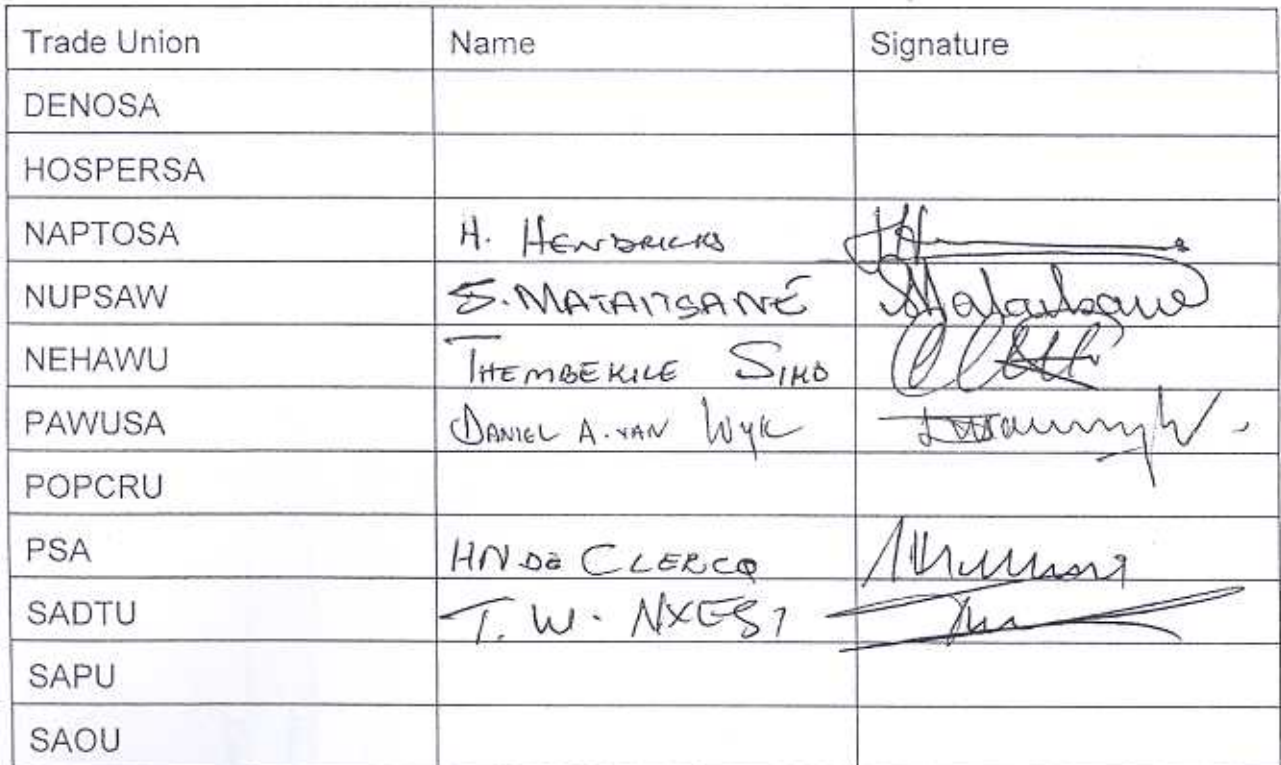 Trade Union Name Signature
DENOSA
HOSPERSA
NAPTOSA H. HENDRICKS
NUPSAW S. MATAITSANE Mataitsane
NEHAWU THEMBEKILE
PAWUSA DANIEL A. VAN WYK
POPCRU
PSA HN DE CLERCQ
SADTU T. W. NXESI
SAPU
SAOU